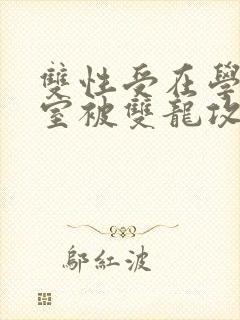 雙性受在學
室被雙龍攻
鄔紅波